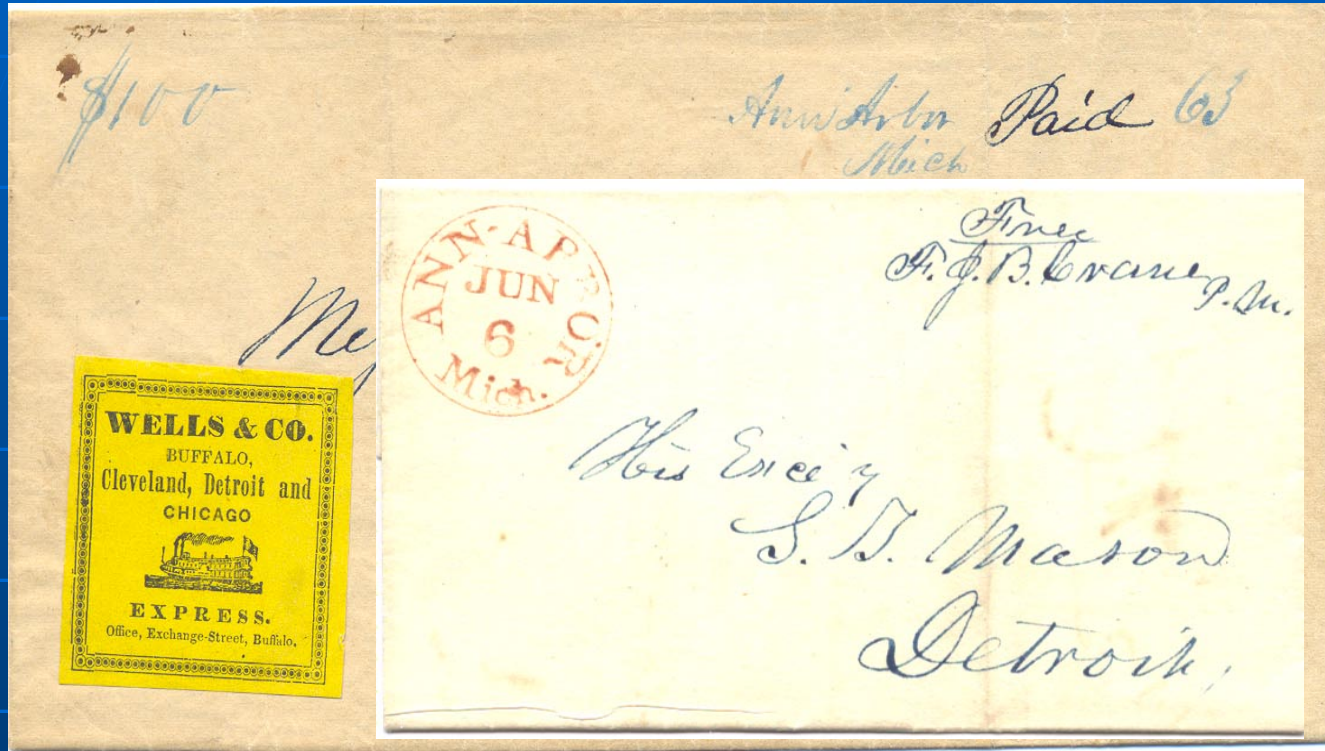 $100
Ann Arbor Paid 63
Mich
WELLS & CO.
BUFFALO,
Cleveland, Detroit and
CHICAGO
EXPRESS.
Office, Exchange-Street, Buffalo.
ANN-ARBOR
JUN
6
Mich.
Free
F. J. B. Crane P. M.
His Excey
S. T. Mason
Detroit,